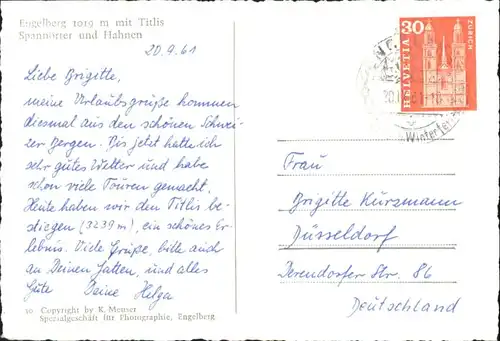 Engelberg 1019 m mit Titlis
Spannörter und Hahnen
20.9.61
Liebe Brigitte,
meine Urlaubsgrüße kommen
diesmal aus den schönen Schwei-
zer Bergen. Bis jetzt hatte ich
sehr gutes Wetter und habe
schon viele Touren gemacht.
Heute haben wir den Titlis be-
stiegen (3239 m), ein schönes Er-
lebnis. Viele Grüße, bitte auch
an Deinen Gatten, und alles
Gute Deine Helga
10 Copyright by K. Meuser
Spezialgeschäft für Photographie, Engelberg
30
HELVETIA
ZÜRICH
Frau
Brigitte Kürzmann
Düsseldorf
Derendorfer Str. 86
Deutschland